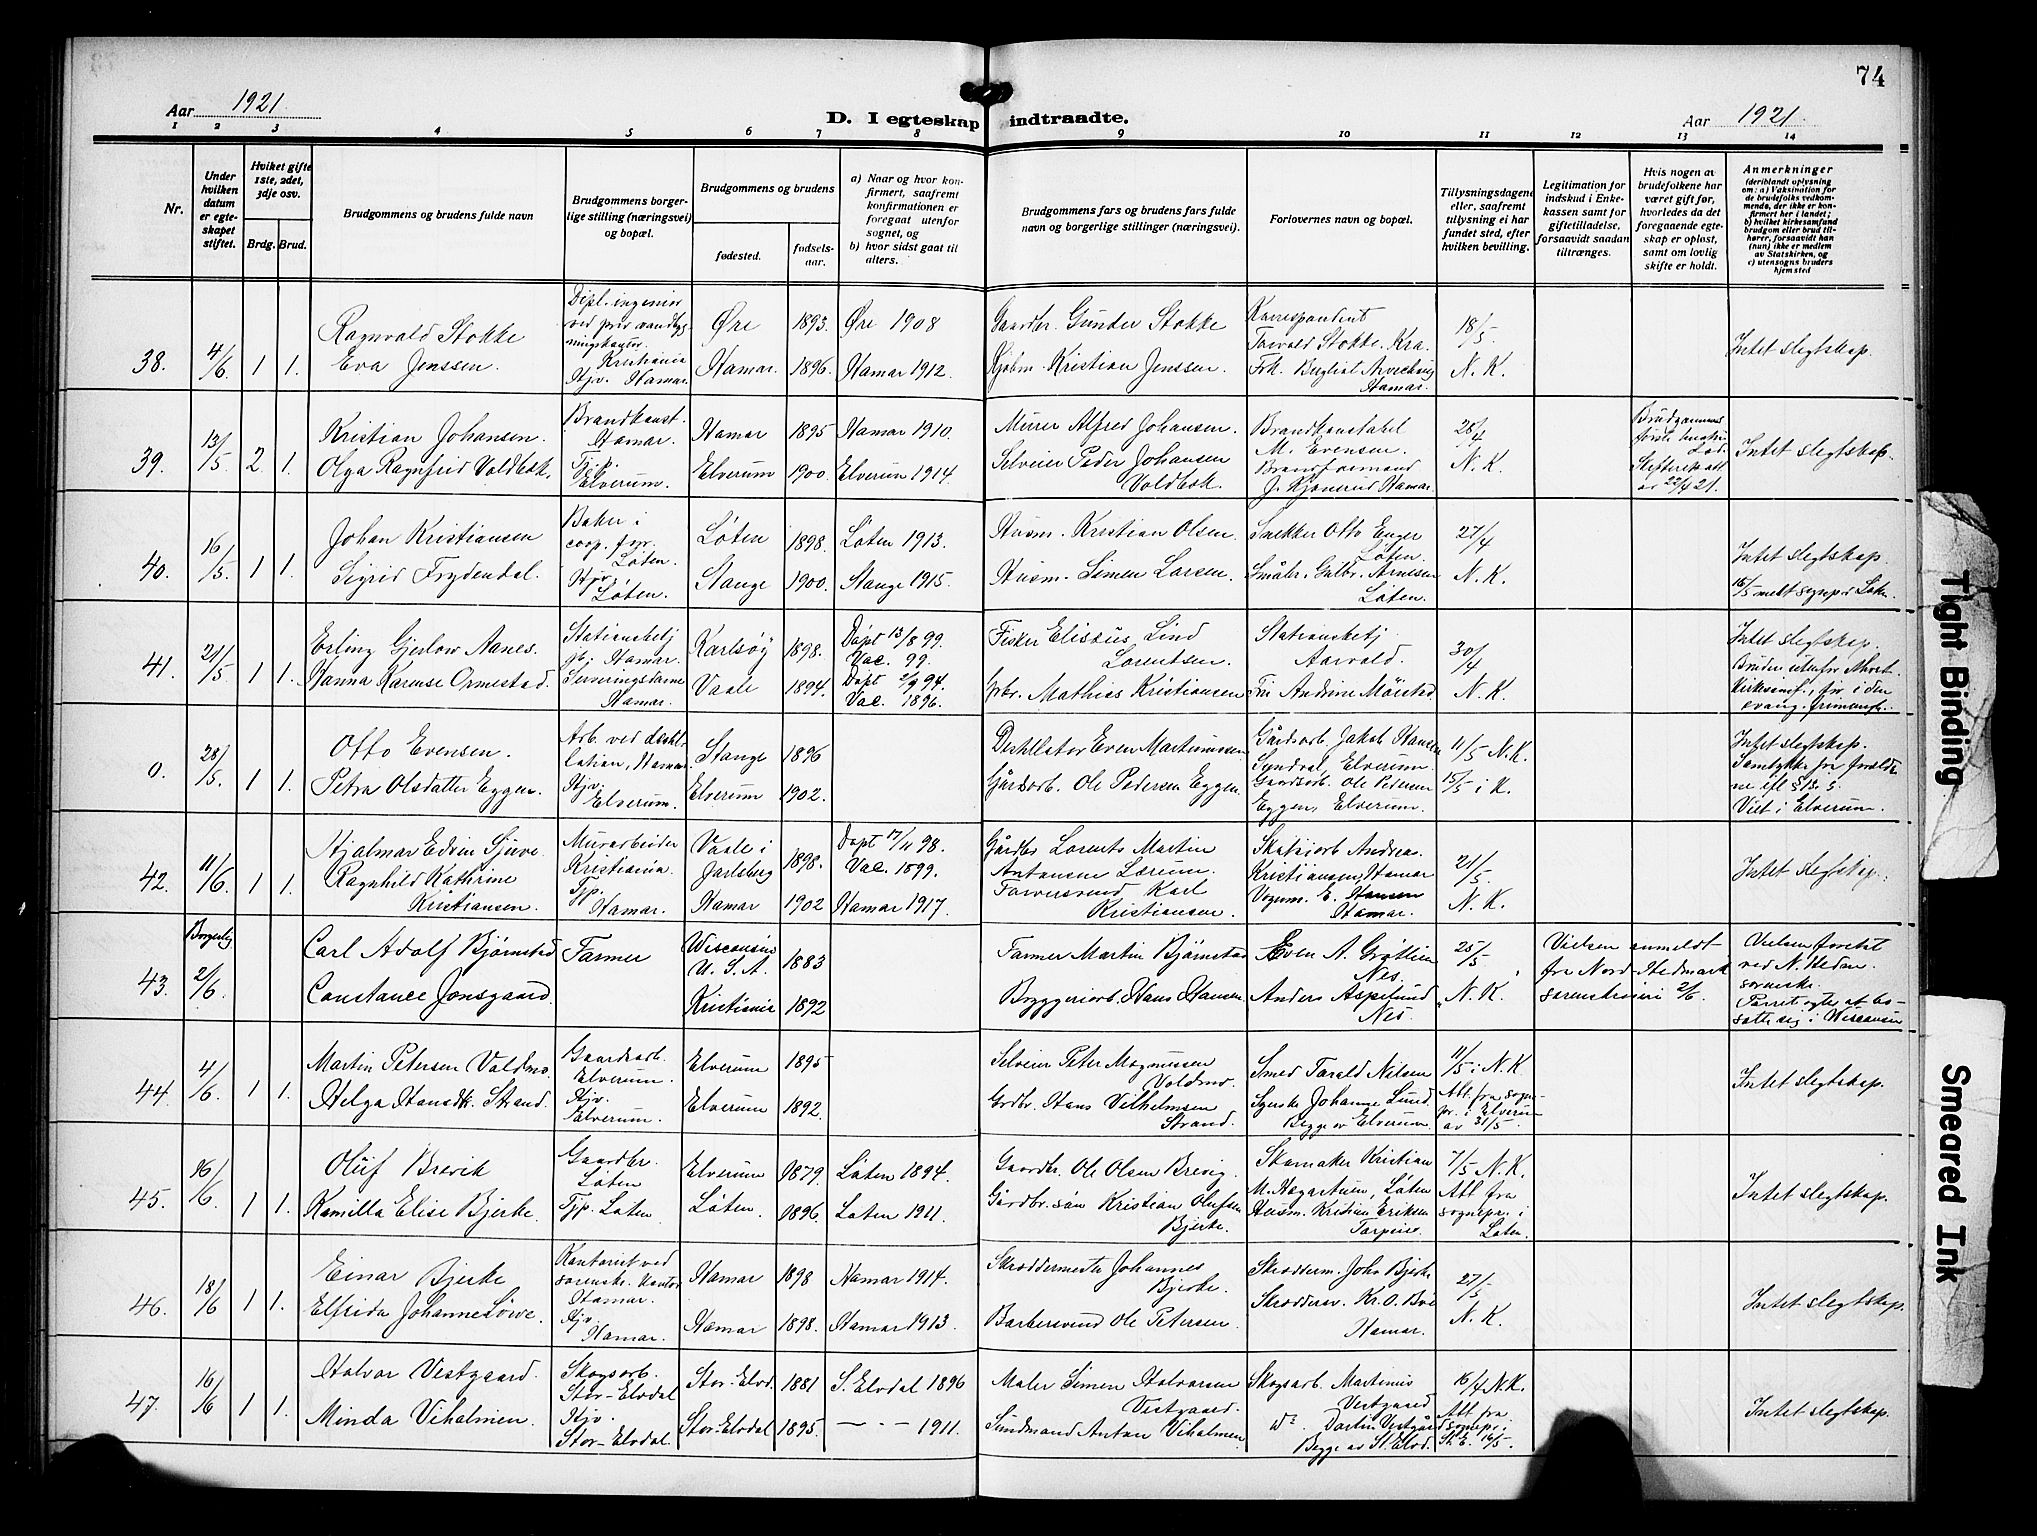 74
Aar 1921.
D. I egteskap indtraadte.
Aar 1921.
1 2 3 4 5 6 7 8 9 10 11 12 13 14
Nr.
Under hvilken datum er egteskapet stiftet.
Hviket gifte 1ste, 2det, 3dje osv.
Brdg. Brud.
Brudgommens og brudens fulde navn
Brudgommens borgerlige stilling (næringsvei) og bopæl.
Brudgommens og brudens
fødested.
fødselsaar.
a) Naar og hvor konfirmert, saafremt konfirmationen er foregaat utenfor sognet, og
b) hvor sidst gaat til alters.
Brudgommens fars og brudens fars fulde navn og borgerlige stillinger (næringsvei).
Forlovernes navn og bopæl.
Tillysningsdagene eller, saafremt tillysning ei har fundet sted, efter hvilken bevilling.
Legitimation for indskud i Enkekassen samt for giftetilladelse, forsaavidt saadan tiltrænges.
Hvis nogen av brudefolkene har været gift før, hvorledes da det foregaaende egteskap er opløst, samt om lovlig skifte er holdt.
Anmerkninger
(deriblandt oplysning om: a) Vaksination for de brudefolks vedkommende, der ikke er konfirmert her i landet; b) hvilket kirkesamfund brudgom eller brud tilhører, forsaavidt han (hun) ikke er medlem av Statskirken, og c) utensogns bruders hjemsted
38. 4/6 1 1.
Ragnvald Stokke
Eva Jenssen.
Dipl. ingeniør
Kristiania
Hjv. Hamar.
Øre 1893. Øre 1908
Hamar. 1896. Hamar 1912.
Gaardbr. Gunder Stokke
Kjøbm. Kristian Jenssen.
Korrespondent
Torvald Stokke. Kra.
Hamar.
18/5.
N. K.
Intet slegtskap.
39. 13/5 2. 1.
Kristian Johansen.
Olga Ragnfrid Voldbæk.
Brandkonst.
Hamar.
Elverum.
Hamar 1895 Hamar 1910.
Elverum 1900. Elverum 1914.
Murer Alfred Johansen.
Selveier Peder Johansen
Voldbæk.
Brandkonstabel
M. Evensen.
Brandformand
Hamar.
28/4
N. K.
Brudgommens
første hustru
død.
Skifteratt
av 22/4 21.
Intet slegtskap.
40. 16/5. 1 1.
Johan Kristiansen
Sigrid Frydendal.
Baker i
coop. for.
Løten.
Hjv.
Løten.
Løten 1898. Løten 1913.
Stange 1900. Stange 1915.
Husm. Kristian Olsen.
Husm. Simen Larsen.
Snekker Otto Enger
Løten.
Småbr. Gulbr. Arnesen
Løten.
27/4
N. K.
Intet slegtskap.
41. 21/5 1 1.
Erling Gjerløw Aanes.
Hanna Karense Ormestad.
Stationsbetj.
Hamar.
Serveringsdame
Hamar.
Karlsöy 1898. Døpt 13/8 99.
Vac. 99.
Vaale 1894. Døpt 2/9 94.
Vac. 1896.
Fisker Eliseus Lind
Lorentsen.
Grbr. Mathias Kristiansen
Stationsbetj
Aarvold.
Fru Andrine Möistad
30/4
N. K.
Intet slegtskap.
0. 28/5 1 1.
Otto Evensen.
Petra Olsdatter Eggen.
Arb. ved destillation, Hamar.
Hjv.
Elverum.
Stange 1896
Elverum 1902.
Destillator Even Martinussen
Gårdsarb. Ole Pedersen Eggen.
Gårdsarb. Jakob Hansen
Elverum.
Gaardsarb. Ole Pedersen
Eggen, Elverum.
11/5 N. K.
15/5 i K.
Intet slegtskap.
Samtykke fra forældrene
Viet i Elverum.
42. 11/6. 1 1.
Hjalmar Edvin Sjuve
Ragnhild Kathrine
Kristiansen.
Murarbeider
Kristiania.
Tjp.
Hamar.
Vaale i
Jarlsberg 1898. Døpt 17/11 98.
Vac. 1899.
Hamar 1902 Hamar 1917.
Gårdbr Lorents Martin
Antonsen Lærum.
Farversvend Karl
Kristiansen.
Andreas
Kristiansen, Hamar
Vognm. E. Hansen
Hamar.
21/5.
N. K.
Intet slegtskap.
43. Borgerlig 2/6.
Carl Adolf Bjørnstad
Constance Jonsgaard.
Farmer
Wisconsin
U. S. A. 1883
Kristiania 1892
Farmer Martin Bjørnstad
Bryggeriarb. Hans Hansen.
Even A. Grøtlien
Nes.
Anders Aspelund
Nes.
25/5.
N. K.
Vielsen anmeldt
fra Nord-Hedmark
sorenskriveri 2/6.
Vielsen foretat
ved N. Hedm.
sorenskr.
Parret agter at bosætte sig i Wisconsin
44. 4/6. 1 1.
Martin Petersen Voldmo.
Helga Hansdtr. Strand.
Gaardsarb.
Elverum.
Hjv.
Elverum.
Elverum 1895
Elverum 1892.
Selveier Peter Magnussen
Voldmo.
Grdbr. Hans Vilhelmsen
Strand.
Smed Torald Nilsen
Syerske Johanne Lund.
Begge av Elverum.
11/5 i N. K.
Att. fra sognepr. i Elverum
av 31/5.
Intet slegtskap.
45. 16/6 1 1.
Oluf Brevik
Kamilla Elise Bjerke.
Gaardbr.
Løten
Tjp. Løten
Elverum 1879. Løten 1894.
Løten. 1896. Løten 1911.
Gaardbr. Ole Olsen Brevig.
Gårdbr. søn Kristian Olufsen
Bjerke.
Skomaker Kristian
Løten
Husm. Kristian Eriksen
7/5 N. K.
Att fra
sognepr. i
Løten.
Intet slegtskap.
46. 18/6 1 1.
Einar Bjerke
Elfrida Johanne Löwe.
Kontorist ved
sorenskr. kontor
Hamar.
Hjv.
Hamar.
Hamar 1898 Hamar 1914.
Hamar 1898. Hamar 1913.
Skræddermester Johannes
Bjerke.
Barbersvend Ole Petersen.
Skrædderm. John Bjerke
Kr. O. Boe
Hamar.
27/5
N. K.
Intet slegtskap.
47. 16/6 1 1.
Halvor Vestgaard.
Minda Viholmen.
Skogsarb.
Stor-Elvdal
Hjv.
Stor-Elvdal.
Stor-Elvd. 1881 S. Elvdal 1896
Stor-Elvdal 1895. — - - 1911.
Maler Simen Halvorsen
Vestgaard.
Sundmand Anton Viholmen
Skogsarb. Martinius
Vestgaard
Vestgård
Begge av St. Elvd.
16/4 N. K.
Att fra
sognepr. i
St. E. 16/5.
Intet slegtskap.
Tight Binding
Smeared Ink